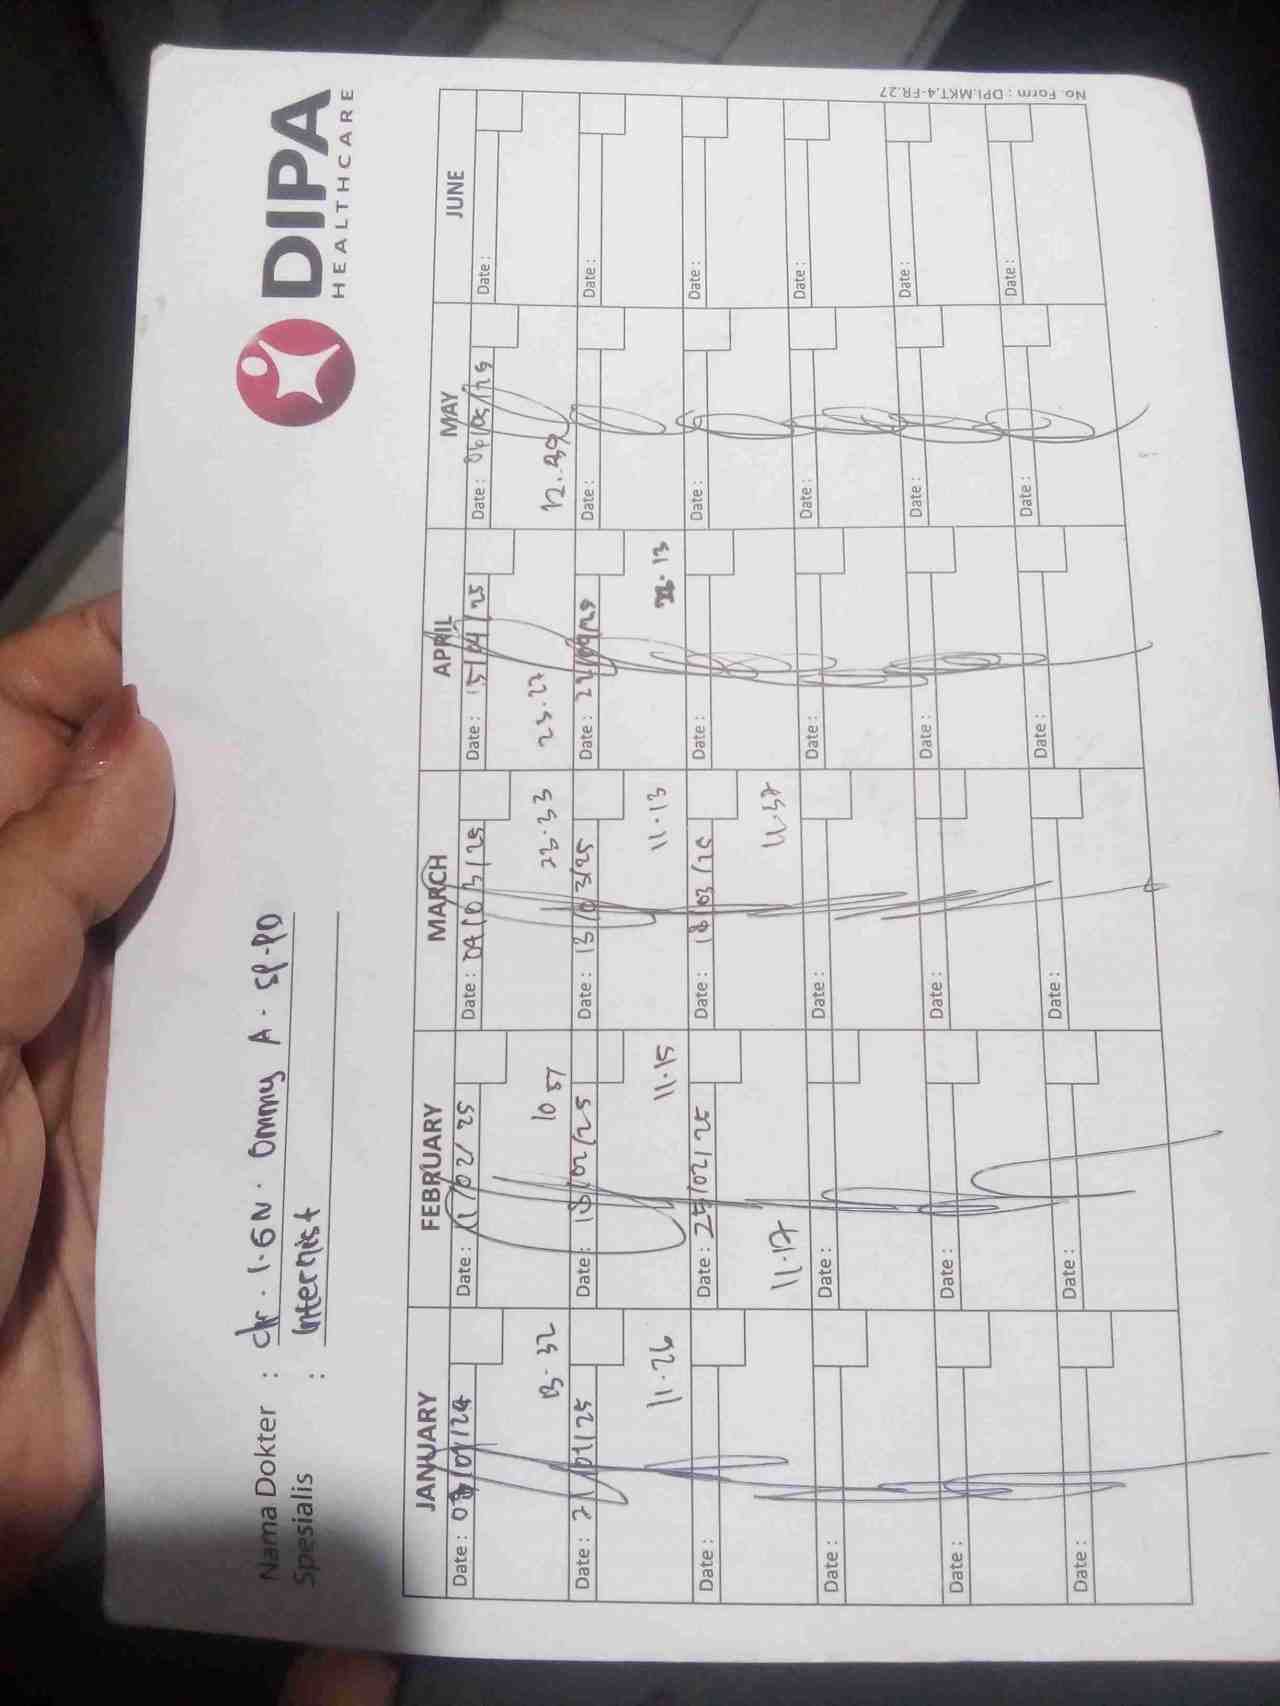 DIPA
HEALTHCARE
Nama Dokter : dr. I. GN. Ommy A. Sp. PD
Spesialis : Internist
JANUARY FEBRUARY MARCH APRIL MAY JUNE
Date : /01/24 Date : 11/02/25 Date : 04/03/25 Date : 15/04/25 Date : 06/05/25 Date :
13.32 10.57 23.33 23.27 12.39
Date : 21/01/25 Date : 18/02/25 Date : 13/03/25 Date : 22/04/25 Date : Date :
11.26 11.15 11.13 .13
Date : Date : 25/02/25 Date : 18/03/25 Date : Date : Date :
11.17 11.37
Date : Date : Date : Date : Date : Date :
Date : Date : Date : Date : Date :
Date : Date : Date : Date : Date : Date :
No. Form : DPI.MKT.4-FR.27